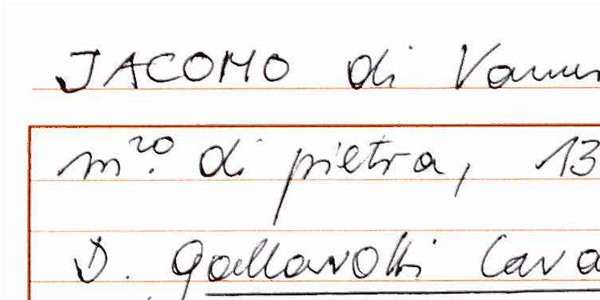 JACOMO di
m.ro di pietra, 13
D. Gallavotti Cava